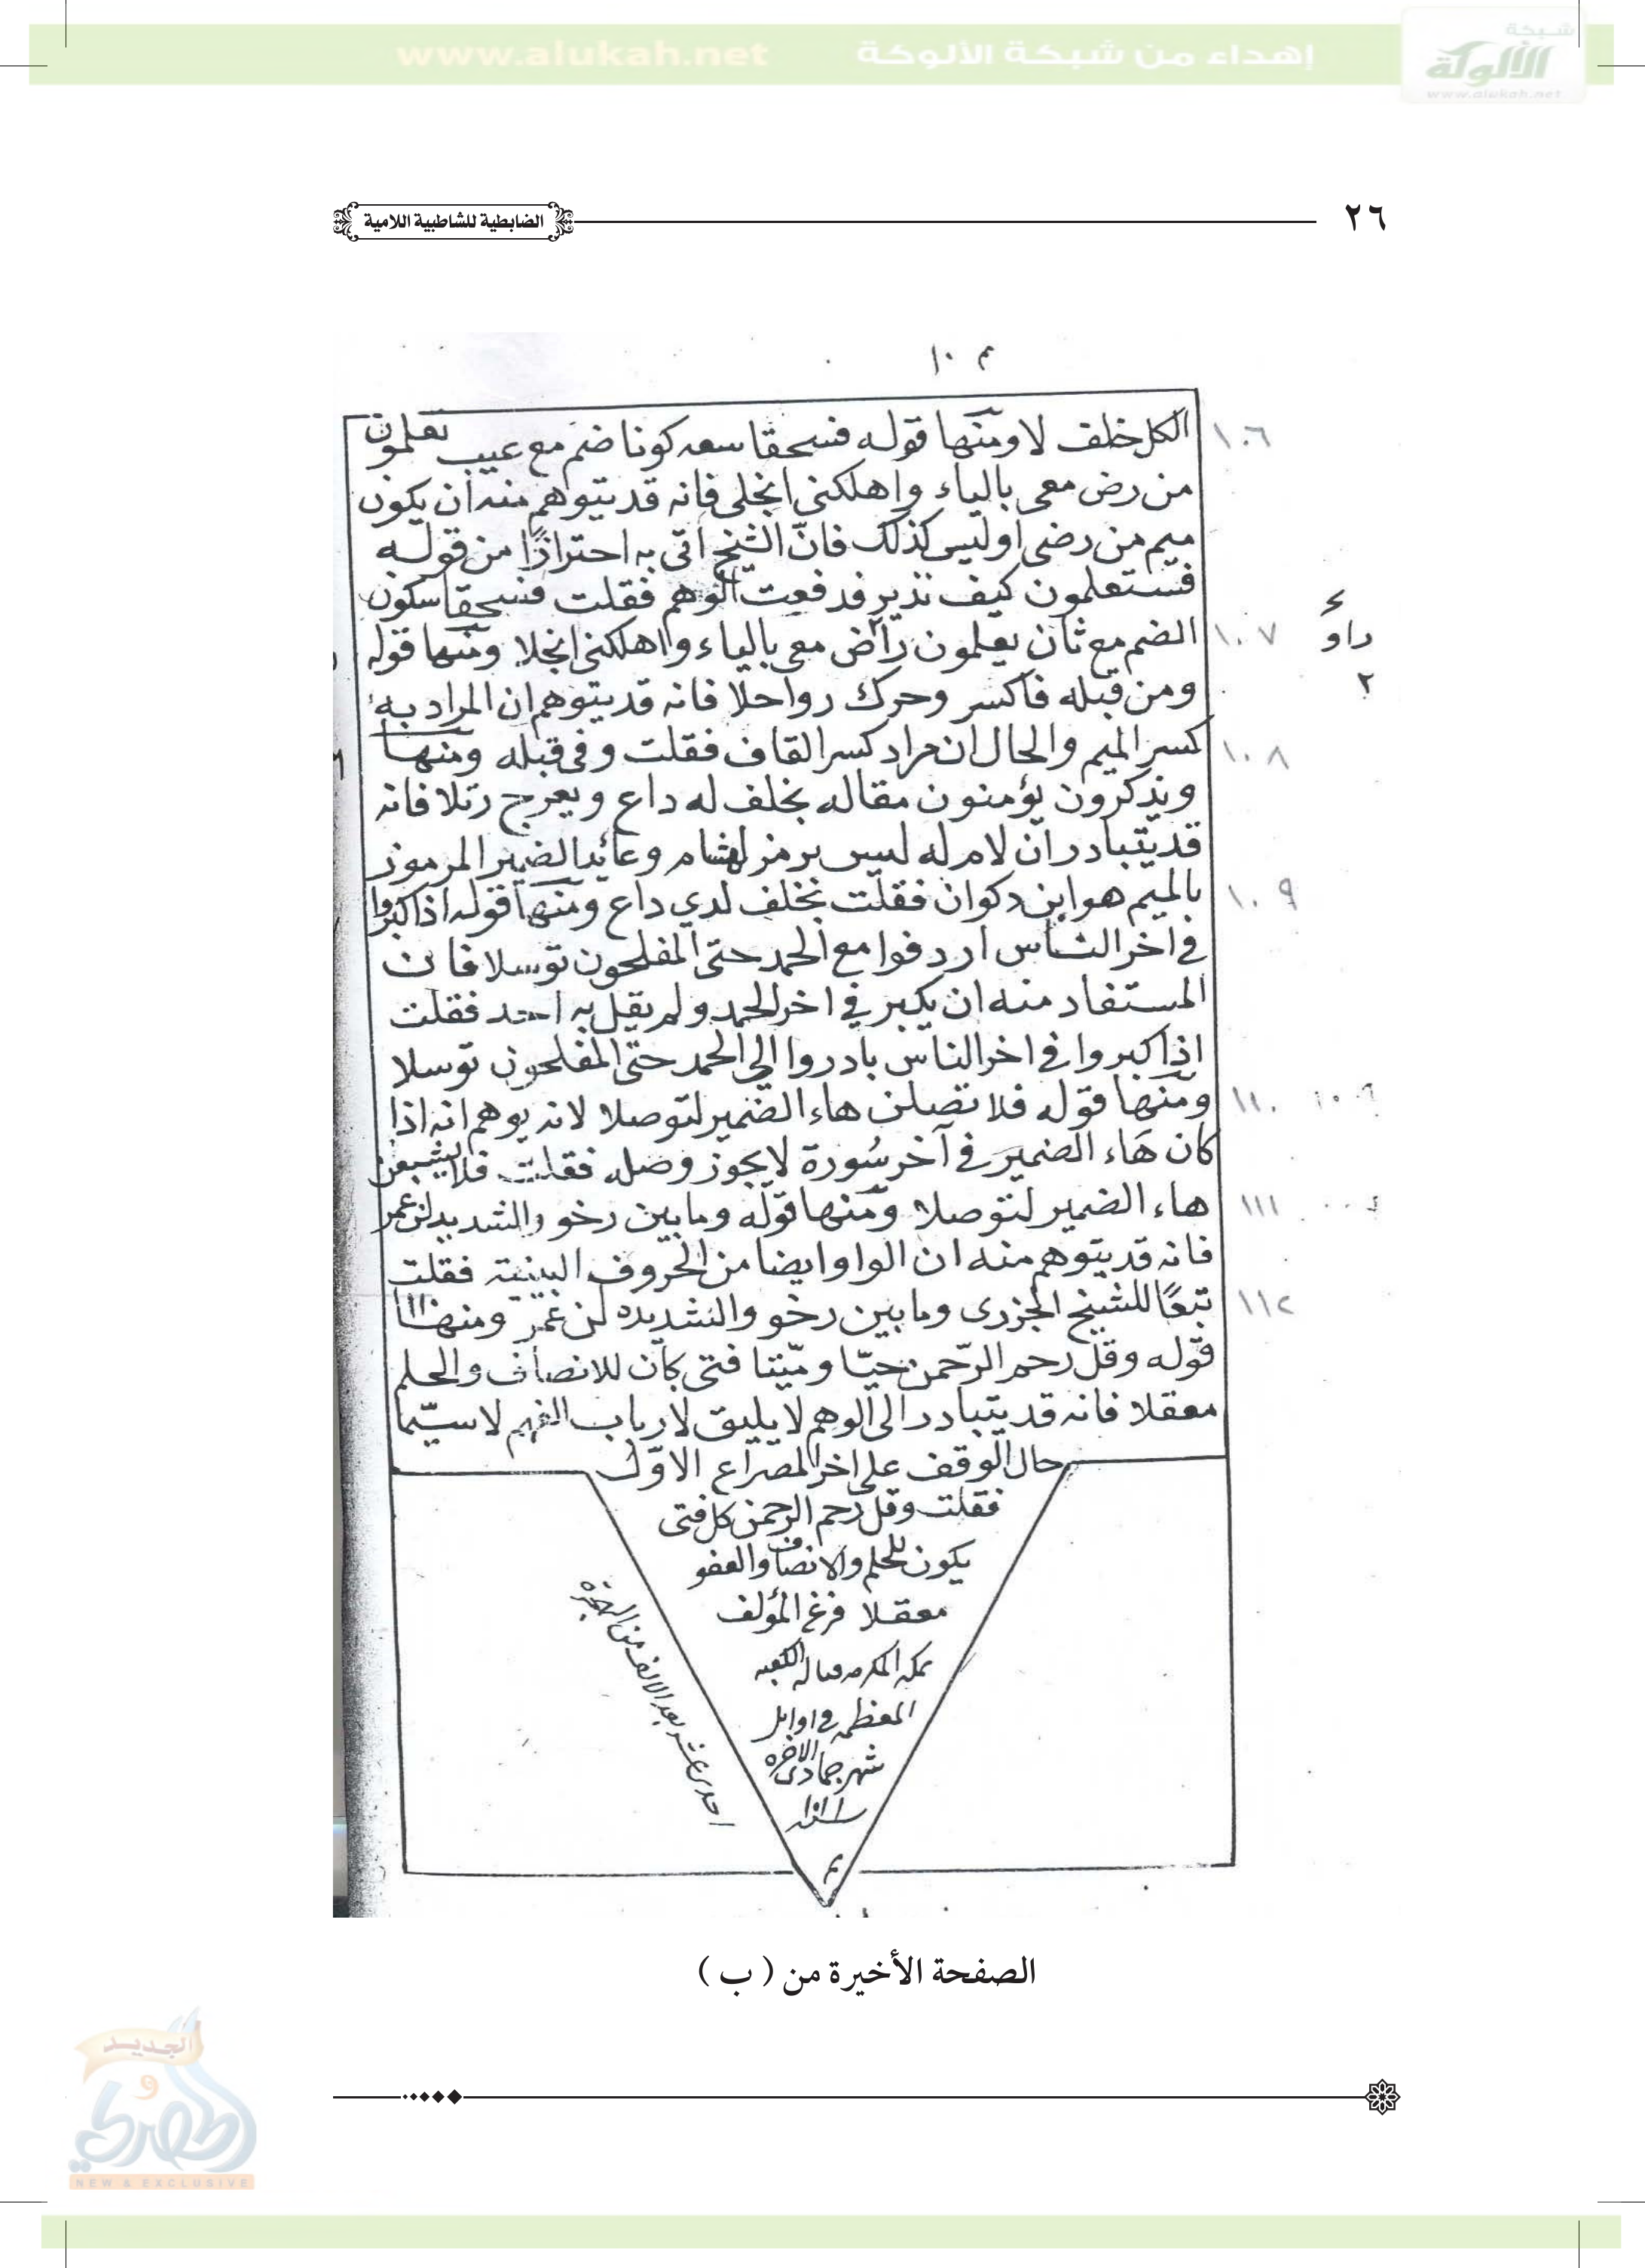 www.alukah.net إهداء من شبكة الألوكة
شبكة
الألوكة
www.alukah.net
الضابطية للشاطبية اللامية ٢٦
م ١٠
١٠٦ الكل خلف لا ومنها قوله فسحقا سعه كونا ضم مع عيب تعلمون
من رض معي بالياء واهلكني انجلى فانه قد يتوهم منه ان يكون
ميم من رضى او ليس كذلك فانّ الشيخ اتى به احترازًا من قوله
فستعلمون كيف نذير فدفعت الوهم فقلت فسحقا سكون
١٠٧ الضم مع ثان يعلمون رآض معي بالياء واهلكني انجلا ومنها قوله
ومن قبله فاكسر وحرك رواحلا فانه قد يتوهم ان المراد به
١٠٨ كسر الميم والحال ان مراد كسر القاف فقلت وفي قبله ومنها
ويذكرون يؤمنون مقاله بخلف له داع ويعرج رتلا فانه
قد يتبادر ان لام له ليس برمز لهشام وعائد الضمير المرموز
١٠٩ بالميم هو ابن دكوان فقلت بخلف لدي داع ومنها قوله اذا كبروا
في اخر الناس اردفوا مع الحمد حتى المفلحون توسلا فان
المستفاد منه ان يكبر في اخر الحمد ولم يقل به احد فقلت
اذا كبروا في اخر الناس بادروا الى الحمد حتى المفلحون توسلا
١١٠ ومنها قوله فلا تصلن هاء الضمير لتوصلا لانه يوهم انه اذا
كان هاء الضمير في آخر سُورة لا يجوز وصله فقلت فلا تشبعن
١١١ هاء الضمير لتوصلا ومنها قوله وما بين رخو والشديد لن عمر
فانه قد يتوهم منه ان الواو ايضا من الحروف البينية فقلت
١١٢ تبعًا للشيخ الجزرى وما بين رخو والشديده لن عمر ومنها
قوله وقل رحم الرّحمن حيّا وميّتا فتى كان للانصاف والحلم
معقلا فانه قد يتبادر الى الوهم لا يليق لارباب الفهم لا سيّما
حال الوقف على اخر المصراع الاوّل
فقلت وقل رحم الرحمن كل فتى
يكون للحلم والانصاف والعفو
معقلا فرغ المؤلف
بمكه المكرمه قباله الكعبه
المعظمه في اوايل
شهر جمادى الاخره
احدى عشر بعد الالف من الهجرة
م
الصفحة الأخيرة من ( ب )
الجديد
و
المصري
NEW & EXCLUSIVE